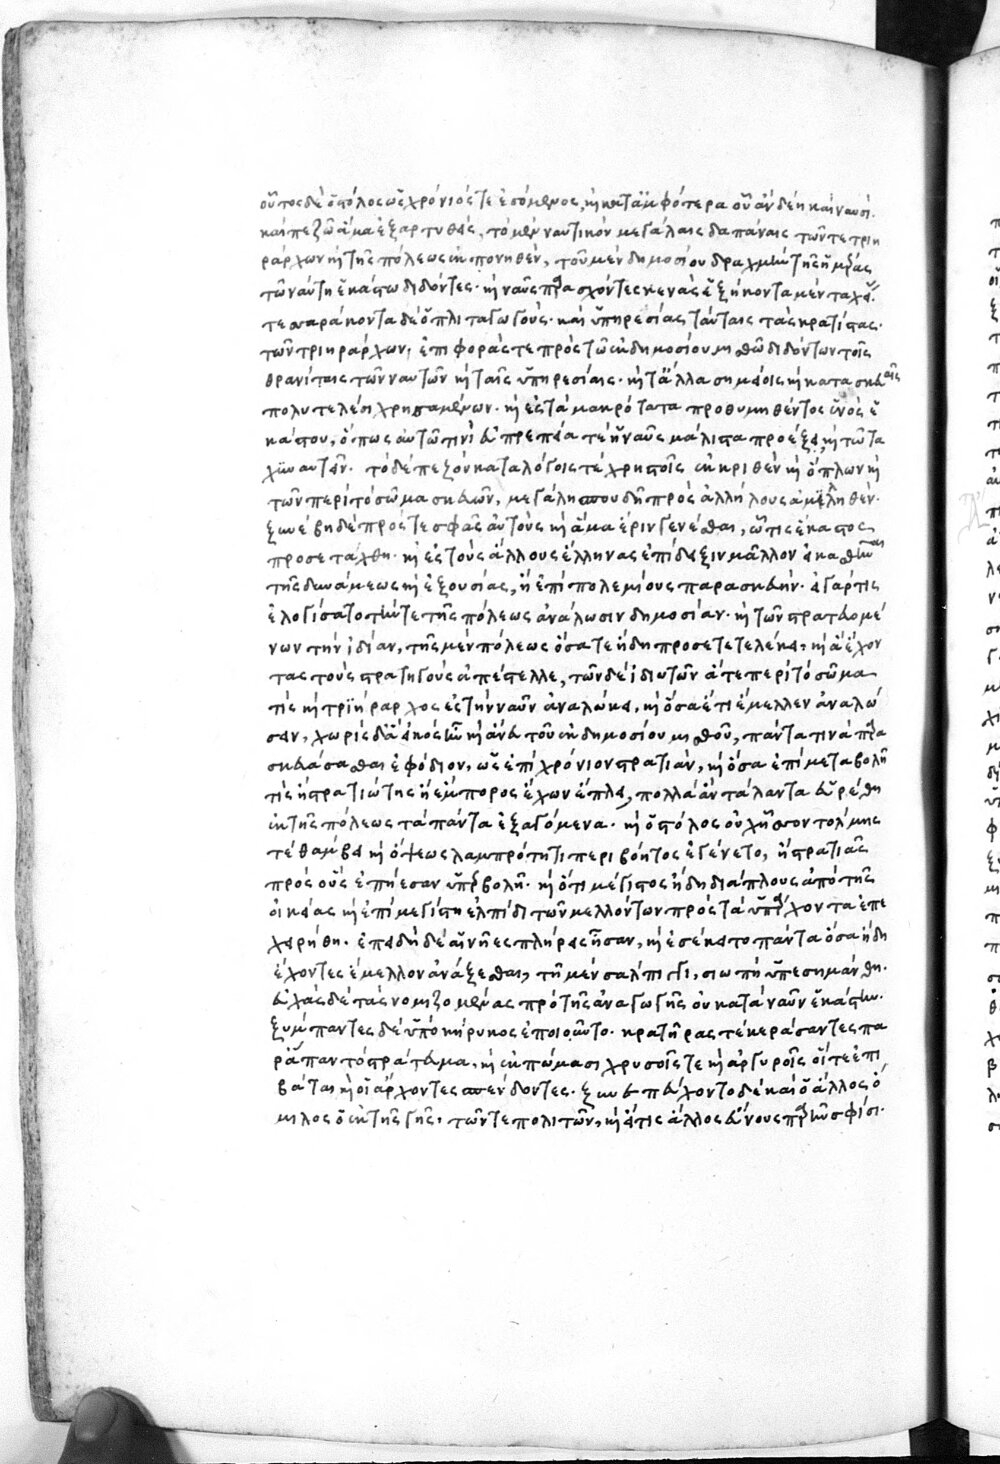 οὗτος δὲ ὁ στόλος ὡς χρόνιός τε ἐσόμενος, καὶ κατ' ἀμφότερα οὗ ἂν δέῃ καὶ ναυσὶ
καὶ πεζῷ ἅμα ἐξαρτυθείς, τὸ μὲν ναυτικὸν μεγάλαις δαπάναις τῶν τε τριη
ράρχων καὶ τῆς πόλεως ἐκπονηθέν, τοῦ μὲν δημοσίου δραχμὴν τῆς ἡμέρας
τῷ ναύτῃ ἑκάστῳ διδόντες. καὶ ναῦς παρασχόντες κενὰς ἑξήκοντα μὲν ταχείας.
τεσσαράκοντα δὲ ὁπλιταγωγούς. καὶ ὑπηρεσίας ταύταις τὰς κρατίστας.
τῶν τριηράρχων, ἐπιφοράς τε πρὸς τῷ ἐκ δημοσίου μισθῷ διδόντων τοῖς
θρανίταις τῶν ναυτῶν καὶ ταῖς ὑπηρεσίαις. καὶ τἄλλα σημείοις καὶ κατασκευαῖς
πολυτελέσι χρησαμένων. καὶ ἐς τὰ μακρότατα προθυμηθέντος ἑνὸς ἑ
κάστου, ὅπως αὐτῷ τινὶ εὐπρεπείᾳ τε ἡ ναῦς μάλιστα προέξει, καὶ τῷ τα
χυναυτεῖν. τὸ δὲ πεζὸν καταλόγοις τε χρηστοῖς ἐκκριθὲν καὶ ὅπλων καὶ
τῶν περὶ τὸ σῶμα σκευῶν, μεγάλῃ σπουδῇ πρὸς ἀλλήλους ἁμιλληθέν.
ξυνέβη δὲ πρός τε σφᾶς αὐτοὺς καὶ ἅμα ἔριν γενέσθαι, ᾧ τις ἕκαστος
προσετάχθη. καὶ ἐς τοὺς ἄλλους ἕλληνας ἐπίδειξιν μᾶλλον εἰκασθῆναι
τῆς δυνάμεως καὶ ἐξουσίας, ἢ ἐπὶ πολεμίους παρασκευήν. εἰ γάρ τις
ἐλογίσατο τήν τε τῆς πόλεως ἀνάλωσιν δημοσίαν. καὶ τῶν στρατευομέ
νων τὴν ἰδίαν, τῆς μὲν πόλεως ὅσα τε ἤδη προσετετελέκει, καὶ ἃ ἔχον
τας τοὺς στρατηγοὺς ἀπέστελλε, τῶν δὲ ἰδιωτῶν ἅ τε περὶ τὸ σῶμα
τὶς καὶ τριήραρχος ἐς τὴν ναῦν ἀναλώκει, καὶ ὅσα ἔτι ἔμελλεν ἀναλώ
σειν, χωρὶς δ' ἃ εἰκὸς ἦν καὶ ἄνευ τοῦ ἐκ δημοσίου μισθοῦ, πάντα τινὰ παρα
σκευάσασθαι ἐφόδιον, ὡς ἐπὶ χρόνιον στρατείαν, καὶ ὅσα ἐπὶ μεταβολῇ
τὶς ἢ στρατιώτης ἢ ἔμπορος ἔχων ἔπλει, πολλὰ ἂν τάλαντα εὑρέθη
ἐκ τῆς πόλεως τὰ πάντα ἐξαγόμενα. καὶ ὁ στόλος οὐχ ἧσσον τόλμης
τε θάμβει καὶ ὄψεως λαμπρότητι περιβόητος ἐγένετο, ἢ στρατιᾶς
πρὸς οὓς ἐπῄεσαν ὑπερβολῇ. καὶ ὅτι μέγιστος ἤδη διάπλους ἀπὸ τῆς
οἰκείας καὶ ἐπὶ μεγίστῃ ἐλπίδι τῶν μελλόντων πρὸς τὰ ὑπάρχοντα ἐπε
χειρήθη. ἐπειδὴ δὲ αἱ νῆες πλήρεις ἦσαν, καὶ ἐσέκειτο πάντα ὅσα ἤδη
ἔχοντες ἔμελλον ἀνάξεσθαι, τῇ μὲν σάλπιγγι, σιωπὴ ὑπεσημάνθη.
εὐχὰς δὲ τὰς νομιζομένας πρὸ τῆς ἀναγωγῆς οὐ κατὰ ναῦν ἑκάστην.
ξύμπαντες δὲ ὑπὸ κήρυκος ἐποιοῦντο. κρατῆράς τε κεράσαντες πα
ρ' ἅπαν τὸ στράτευμα, καὶ ἐκπώμασι χρυσοῖς τε καὶ ἀργυροῖς οἵ τε ἐπι
βάται καὶ οἱ ἄρχοντες σπένδοντες. ξυνεπεύχοντο δὲ καὶ ὁ ἄλλος ὅ
μιλος ὁ ἐκ τῆς γῆς, τῶν τε πολιτῶν, καὶ εἴ τις ἄλλος εὔνους παρῆν σφίσι.